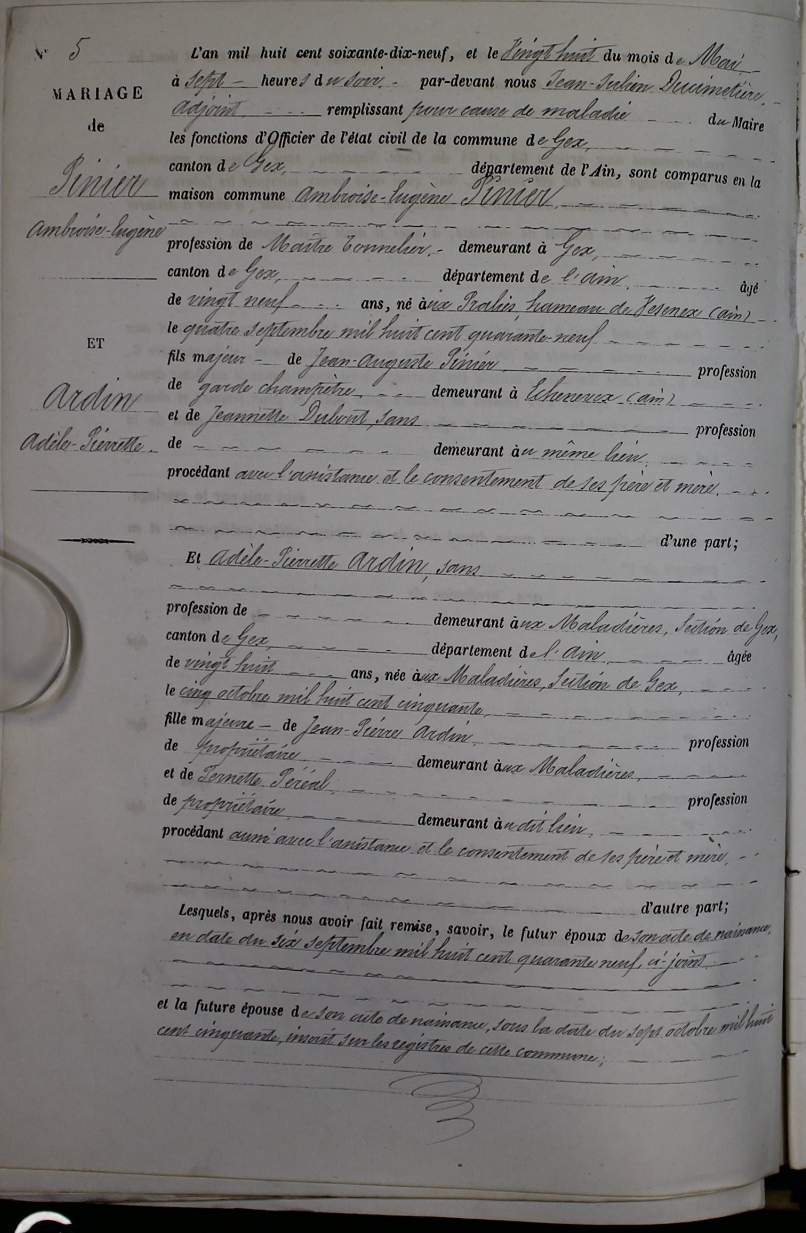 N° 5
MARIAGE
de
Pinier
Ambroise-Eugène
ET
Ardin
Adèle-Pierrette
L'an mil huit cent soixante-dix-neuf, et le Vingt huit du mois de Mai
à sept heures du soir par-devant nous Jean-Julien Dumetière
adjoint remplissant pour cause de maladie du Maire
les fonctions d'Officier de l'état civil de la commune de Gex,
canton de Gex, département de l'Ain, sont comparus en la
maison commune Ambroise-Eugène Pinier
profession de Maître Tonnelier demeurant à Gex,
canton de Gex, département de l'ain âgé
de vingt neuf ans, né aux Pralies, hameau de Vesenex (ain)
le quatre septembre mil huit cent quarante-neuf
fils majeur de Jean-Auguste Pinier profession
de garde champêtre demeurant à Echenevex (ain)
et de Jeannette Dubout, sans profession
de demeurant au même lieu
procédant avec l'assistance et le consentement de ses père et mère
d'une part;
Et Adèle-Pierrette Ardin, sans
profession de demeurant aux Maladières, Section de Gex,
canton de Gex, département de l'ain âgée
de vingt huit ans, née aux Maladières, Section de Gex,
le cinq octobre mil huit cent cinquante
fille majeure de Jean-Pierre Ardin profession
de propriétaire demeurant aux Maladières
et de Pernette Péréal profession
de propriétaire demeurant au dit lieu,
procédant aussi avec l'assistance et le consentement de ses père et mère,
d'autre part;
Lesquels, après nous avoir fait remise, savoir, le futur époux de son acte de naissance,
en date du six septembre mil huit cent quarante neuf, ci-joint
et la future épouse de son acte de naissance, sous la date du sept octobre mil huit
cent cinquante, inscrit sur les registres de cette commune;